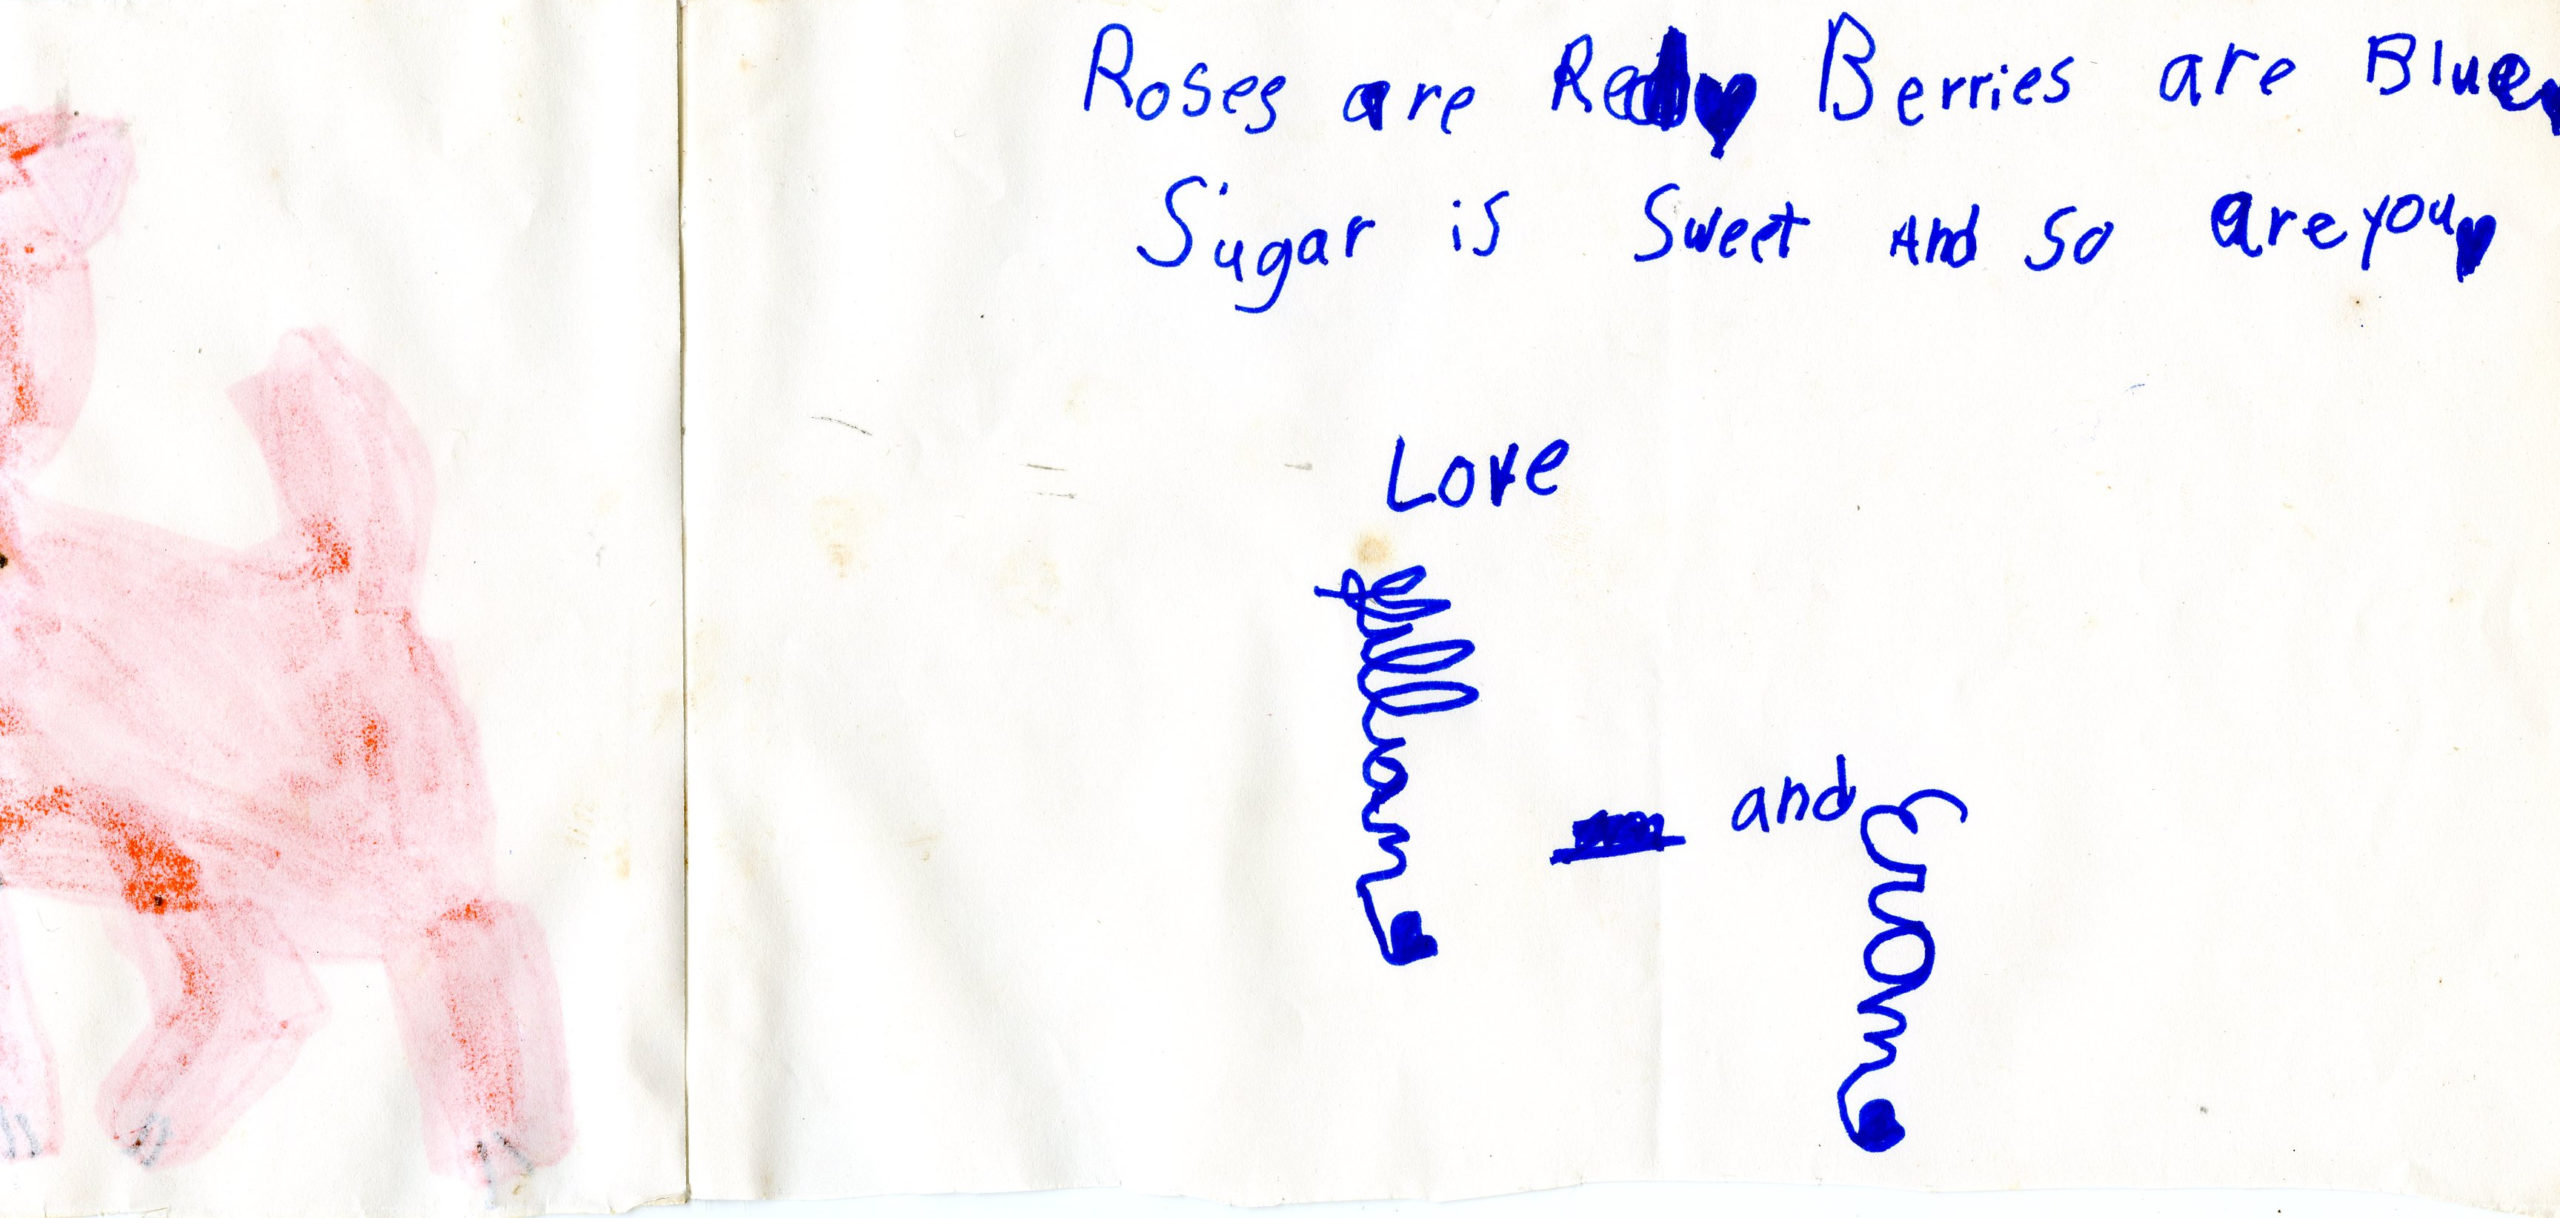 Roses are Red Berries are Blue
Sugar is Sweet And so are you
Love
Jillian
and Evan